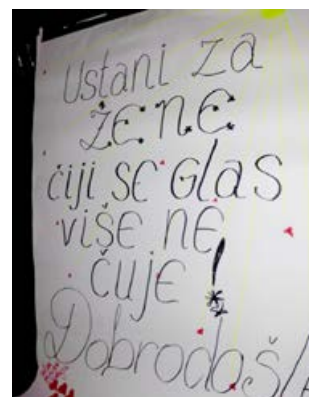 Ustani za
žene
čiji se glas
više ne
čuje!